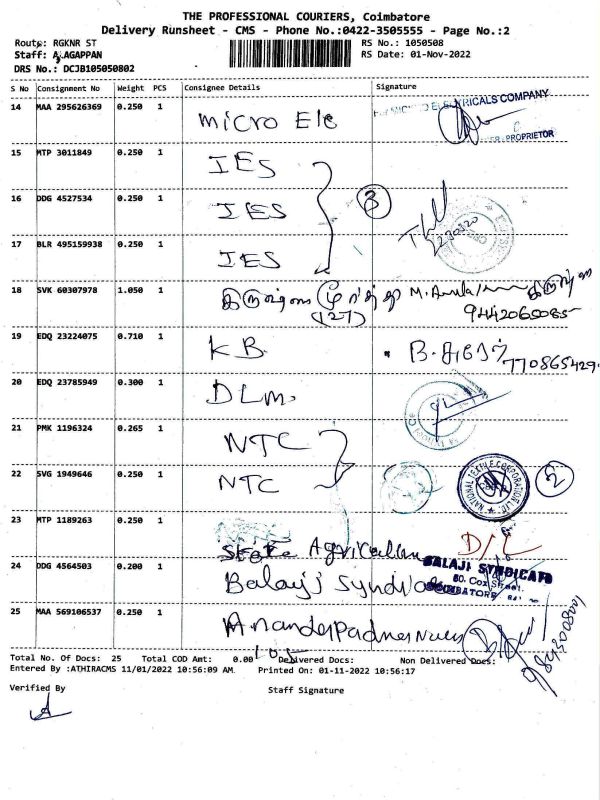 THE PROFESSIONAL COURIERS, Coimbatore
Delivery Runsheet - CMS - Phone No.:0422-3505555 - Page No.:2
Route: RGKNR ST
RS No.: 1050508
Staff: A.AGAPPAN
RS Date: 01-Nov-2022
DRS No.: DCJB105050802
S No Consignment No Weight PCS Consignee Details Signature
14 MAA 295626369 0.250 1 Micro Ele
ELECTRICALS COMPANY
PROPRIETOR
15 MTP 3011849 0.250 1 IES
16 DDG 4527534 0.250 1 IES 3
17 BLR 495159938 0.250 1 IES
18 SVK 60307978 1.050 1
(127) 9442065085
19 EDQ 23224075 0.710 1 KB
20 EDQ 23785949 0.300 1 DLM.
21 PMK 1196324 0.265 1 NTC
22 SVG 1949646 0.250 1 NTC 2
NATIONAL TEXTILE CORPORATION LTD.
23 MTP 1189263 0.250 1 State
24 DDG 4564503 0.200 1 Balaji Syndi
BALAJI SYNDICATE
60. Cox Street.
COIMBATORE
25 MAA 569106537 0.250 1
105
Total No. Of Docs: 25 Total COD Amt: 0.00 Delivered Docs: Non Delivered Docs:
Entered By :ATHIRACMS 11/01/2022 10:56:09 AM Printed On: 01-11-2022 10:56:17
Verified By Staff Signature